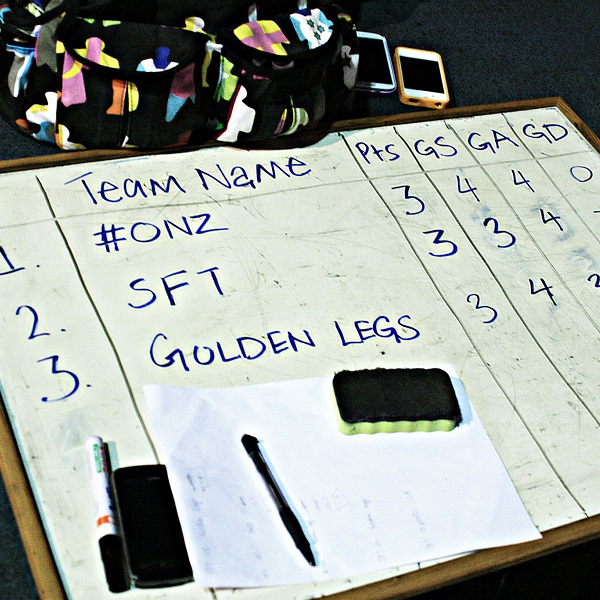 Team Name Pts GS GA GD
1. #ONZ 3 4 4 0
2. SFT 3 3 4
3. GOLDEN LEGS 3 4